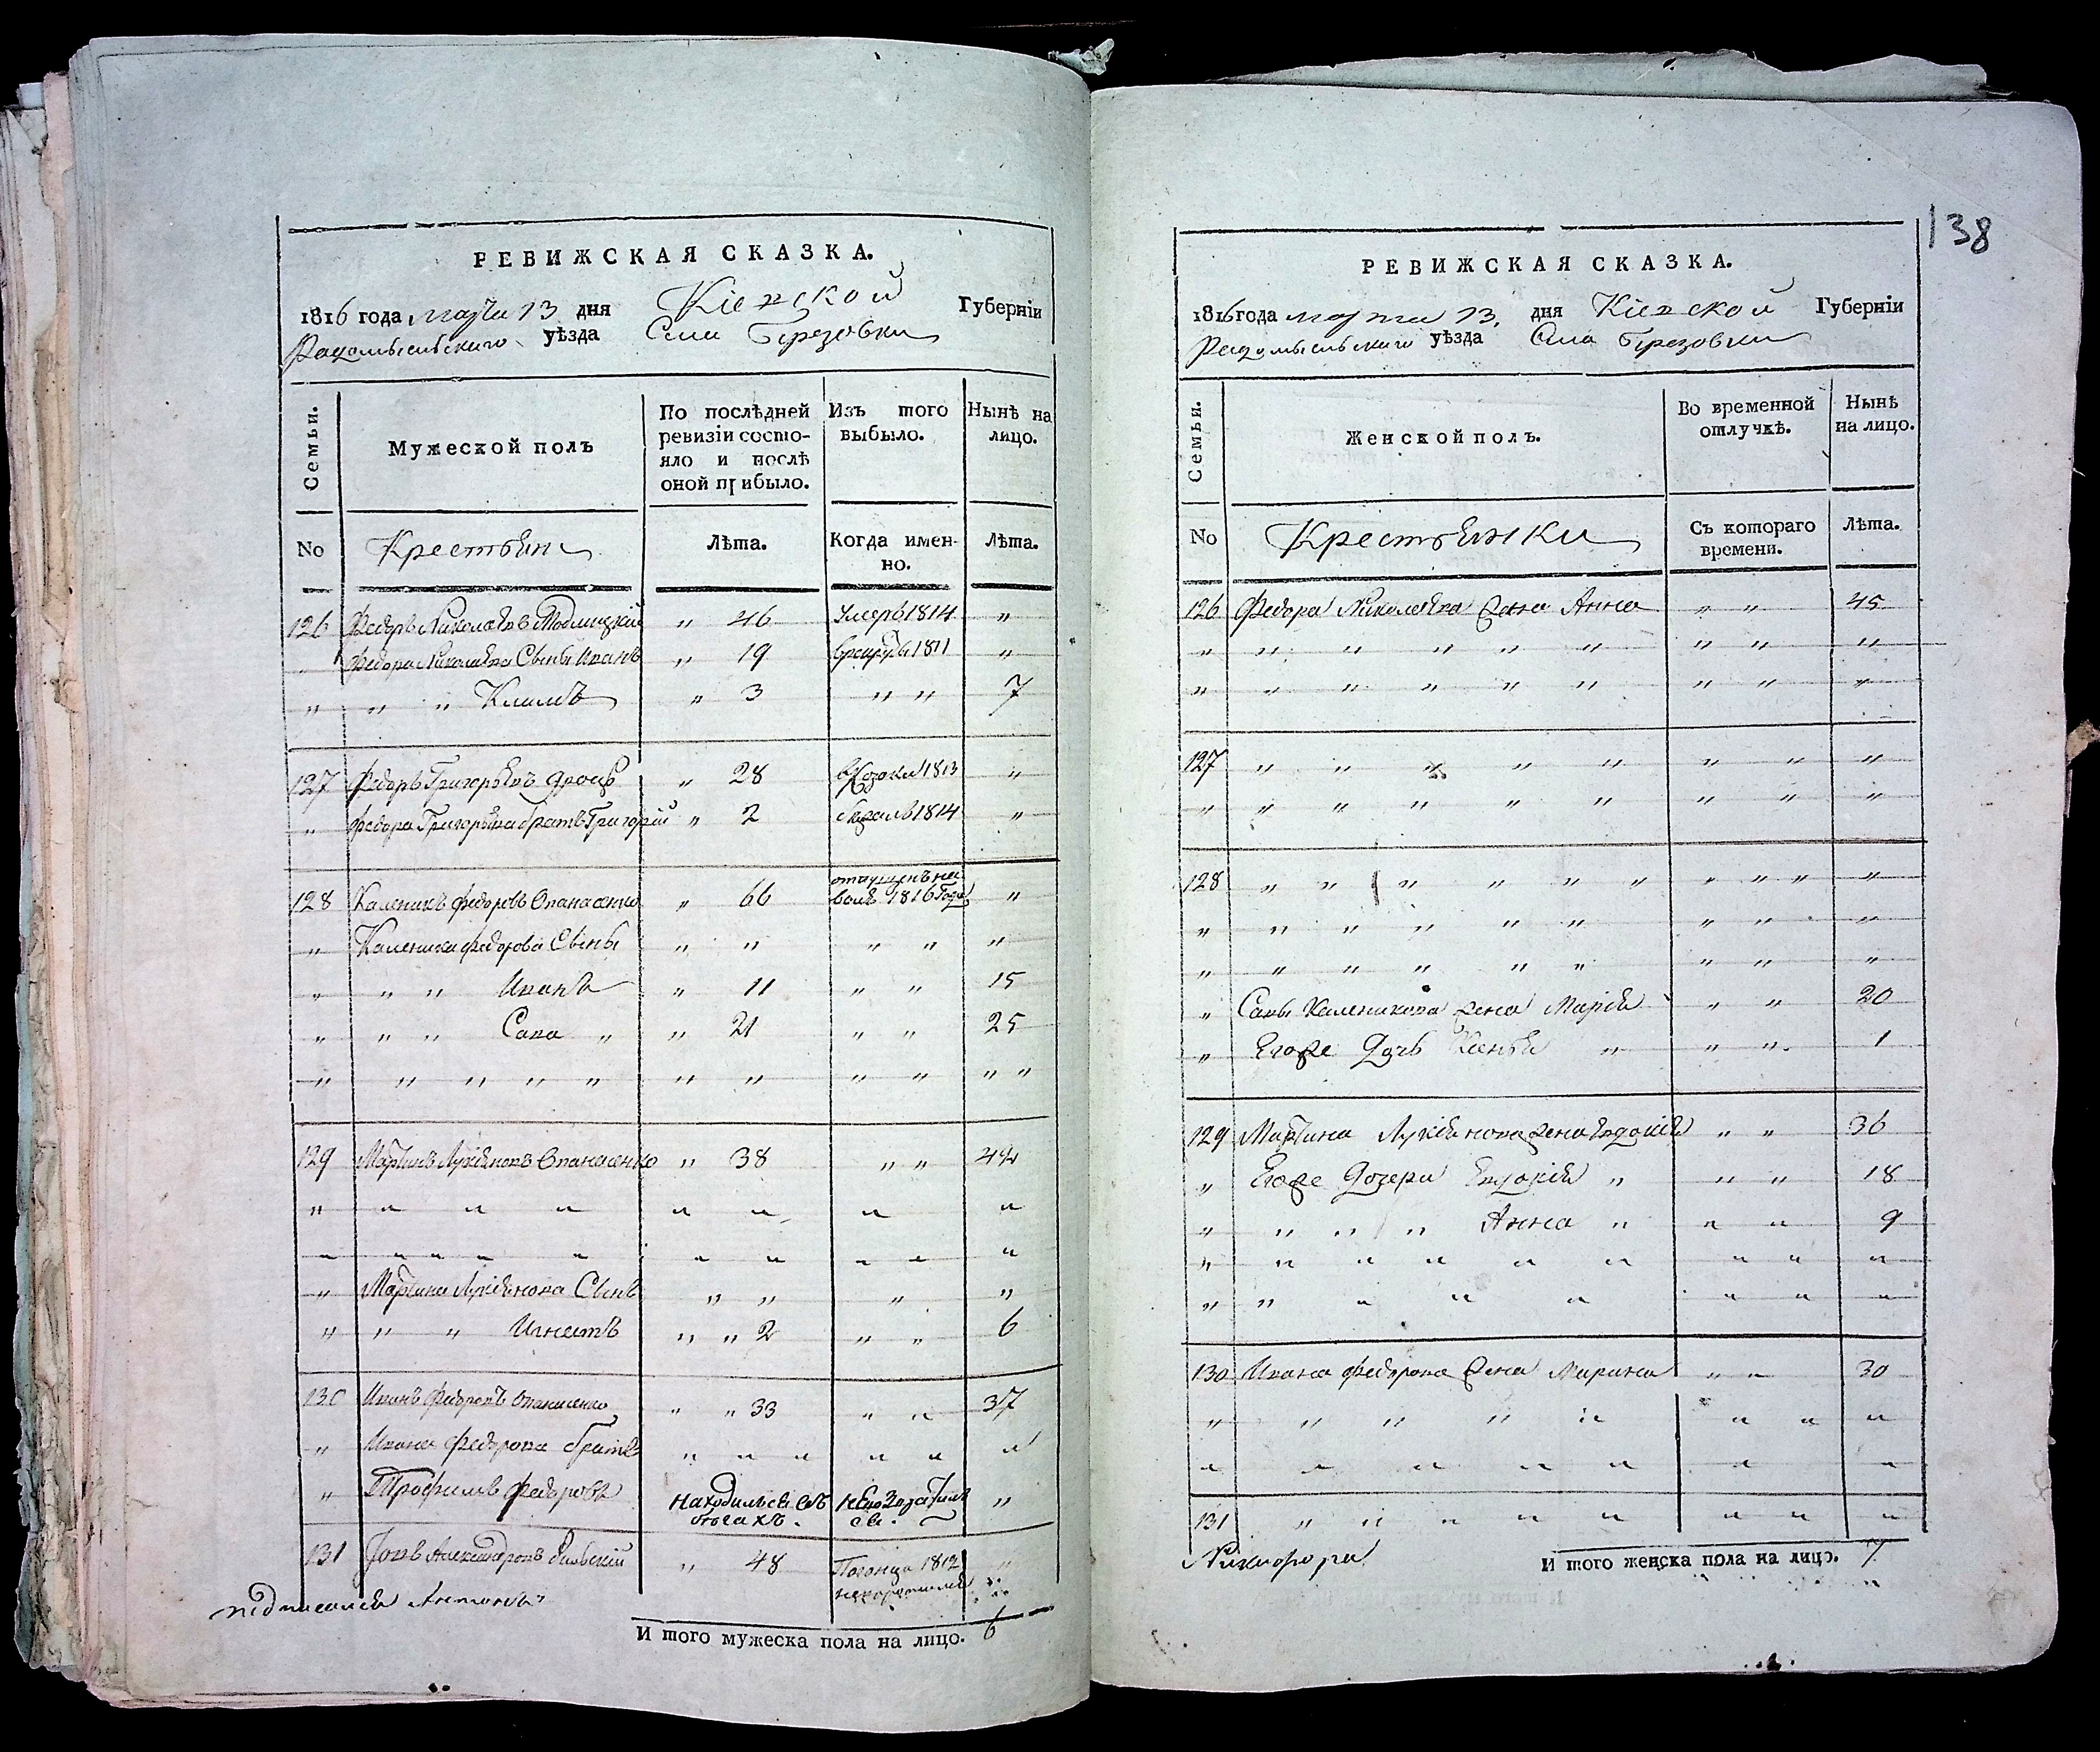 РЕВИЖСКАЯ СКАЗКА.
1816 года марта 13 дня Кіевской Губерніи
Радомысльскаго уѣзда Села Березовки
Семьи.
Мужеской полъ
По послѣдней ревизіи состо-
яло и послѣ
оной прибыло.
Изъ того
выбыло.
Нынѣ на
лицо.
No
Крестьяне
Лѣта.
Когда имен-
но.
Лѣта.
126 Федоръ Николаевъ „ 46 умеръ 1814 „
„ Федора Николаева Сынъ Иванъ „ 19 1811 „
„ „ „ Климъ „ 3 „ „ 7
127 Федоръ Григорьевъ „ 28 в Козаки 1813 „
„ Федора Григорьева братъ Григорій „ 2 1814 „
128 Каленикъ Федоровъ Опанасенко „ 66 отпущенъ на
волю 1816 Года „
„ Каленика Федорова Сыны „ „ „ „ „
„ „ „ Иванъ „ 11 „ „ 15
„ „ „ Сава „ „ 21 „ „ 25
„ „ „ „ „ „ „ „ „ „ „
129 Мартинъ Лукіяновъ Опанасенко „ 38 „ „ 42
„ „ „ „ „ „ „ „
„ „ „ „ „ „ „ „ „ „
„ Мартина Лукіянова Сынъ „ „ „ „
„ „ „ Игнатъ „ „ 2 „ „ 6
130 Иванъ Федоровъ Опанасенко „ „ 33 „ „ 37
„ Ивана Федорова братъ „ „ „ „ „ „
„ Трофимъ Федоровъ Находился въ
бѣгахъ. невозвратил
ся. „
131 Александровъ „ 48 1812
подписался Антонъ
И того мужеска пола на лицо. 6
138
РЕВИЖСКАЯ СКАЗКА.
1816 года марта 13. дня Кіевской Губерніи
Радомысльскаго уѣзда Села Березовки
Семьи.
Женской полъ.
Во временной
отлучкѣ.
Нынѣ
на лицо.
No
Крестьянки
Съ котораго
времени.
Лѣта.
126 Федора Николаева жена Анна „ „ 45
„ „ „ „ „ „ „ „ „
„ „ „ „ „ „ „ „ „
127 „ „ „ „ „ „ „ „
„ „ „ „ „ „ „ „ „
128 „ „ „ „ „ „ „ „ „ „
„ „ „ „ „ „ „ „ „
„ „ „ „ „ „ „ „ „
„ Савы Каленикова жена Марія „ „ 20
„ Егоже Дочь „ „ „ 1
129 Мартина Лукіянова жена Евдокія „ „ 36
„ Егоже Дочери Евдокія „ „ „ 18
„ „ „ „ Анна „ „ „ 9
„ „ „ „ „ „ „ „ „
„ „ „ „ „ „ „ „
130 Ивана Федорова жена Марина „ „ 30
„ „ „ „ „ „ „ „
„ „ „ „ „ „ „
131 „ „ „ „ „ „ „ „
И того женска пола на лицо. 7